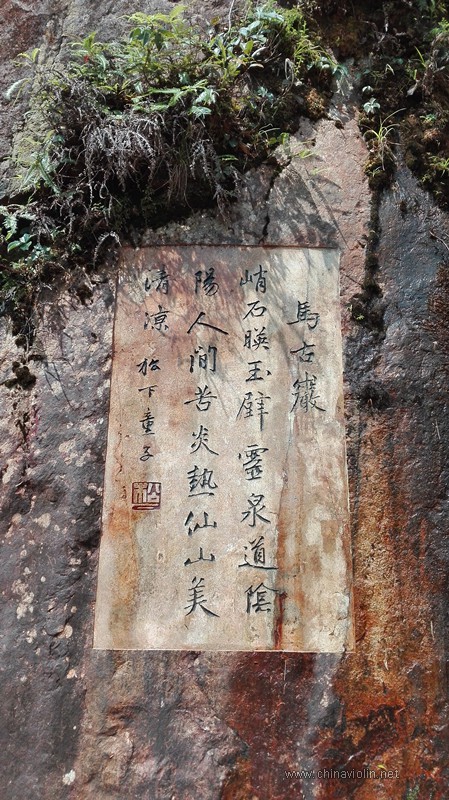 馬古巖
峭石暎玉壁靈泉道陰
陽人間苦炎熱仙山美
清凉松下童子
www.chinaviolin.net